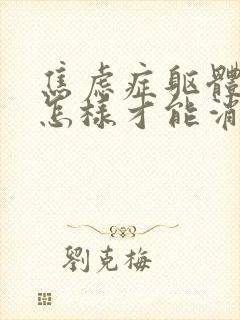 焦虑症躯體
怎樣才能消
劉克梅